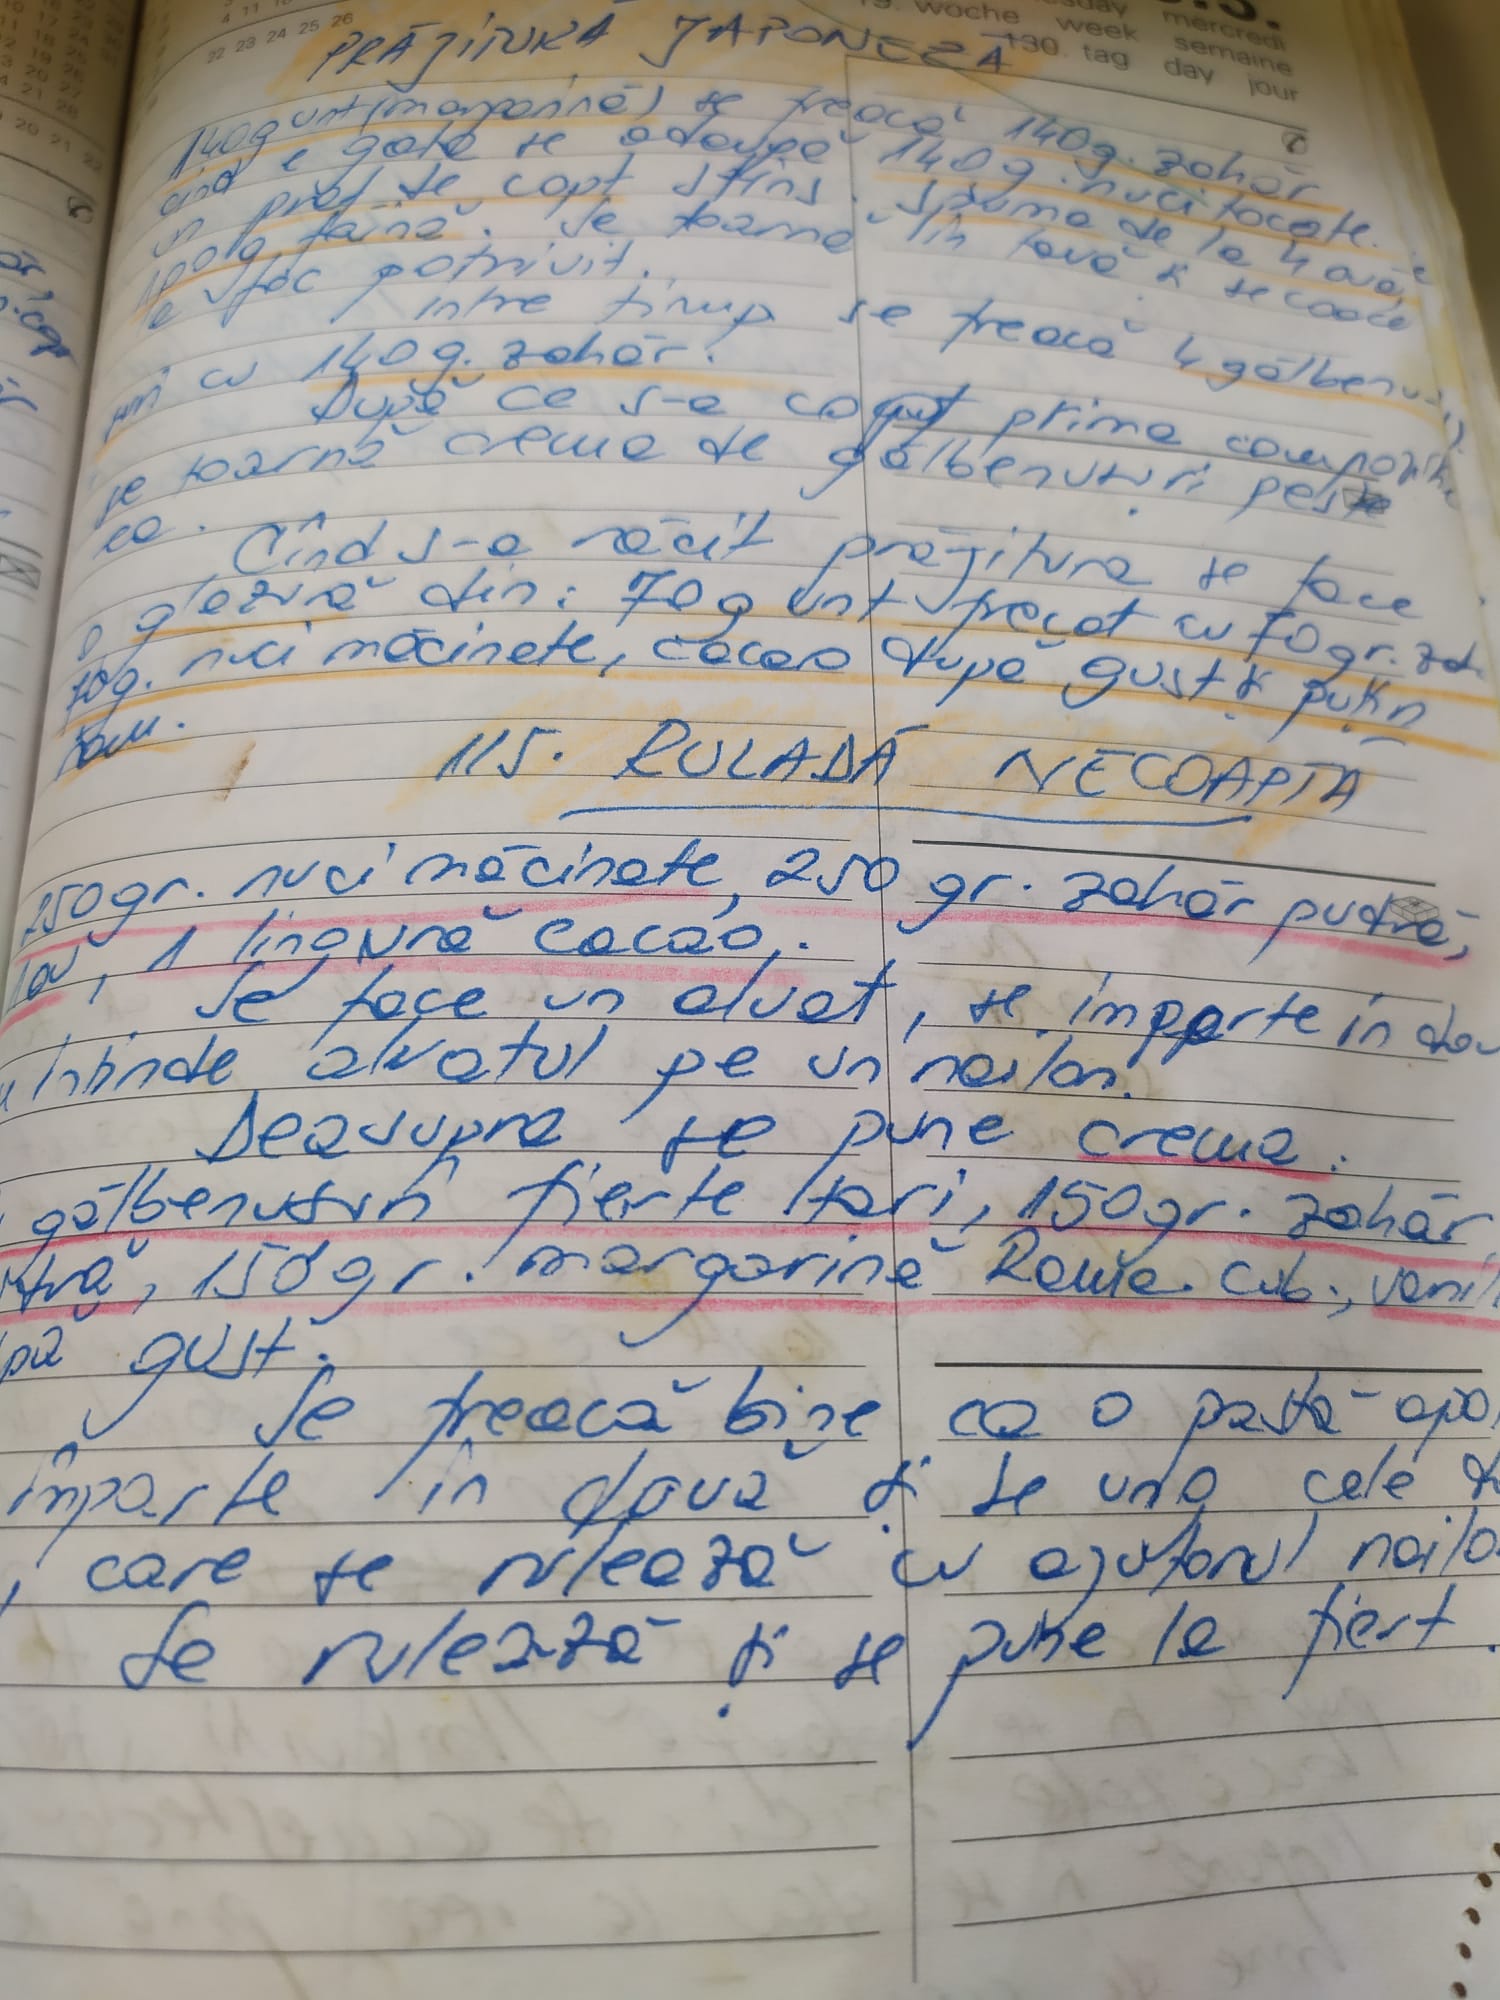 mercredi
19. woche week semaine
130. tag day jour
22 23 24 25 26
PRĂJITURĂ JAPONEZĂ
140g unt (margarină) se freacă 140g. zahăr
cînd e gata se adaugă 140g. nuci tocate.
un praf de copt stins. Spuma de la 4 ouă,
făină. Se toarnă în tavă și se coace
la foc potrivit.
Intre timp se freacă 4 gălbenu-
uri cu 140g. zahăr.
După ce s-a copt prima compoziție
se toarnă crema de gălbenușuri peste
ea.
Cînd s-a răcit prăjitura se face
o glazură din: 70g unt frecat cu 70gr. zah.
70g. nuci măcinate, cacao după gust și puțin
rom.
115. RULADĂ NECOAPTĂ
250gr. nuci măcinate, 250 gr. zahăr pudră,
1 ou, 1 lingură cacao.
Se face un aluat, se împarte în dou
întinde aluatul pe un nailon.
Deasupra se pune crema:
gălbenușuri fierte tari, 150gr. zahăr
150gr. margarină Rama. cub., vanil
pă gust.
Se freacă bine ca o pastă apoi
împarte în două și se ung cele d
, care se rulează cu ajutorul nailo
Se rulează și se pune la fiert.